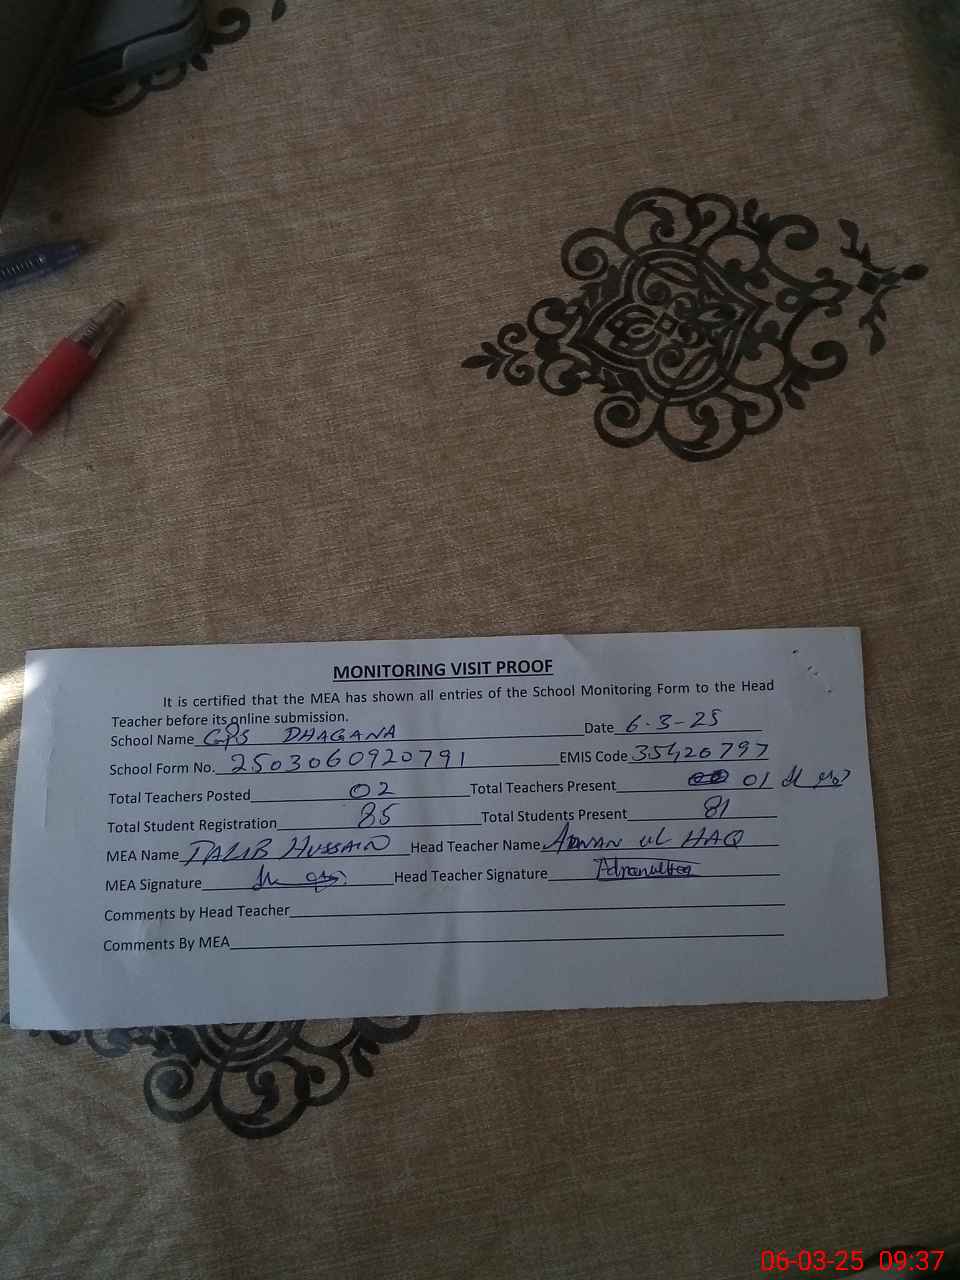 MONITORING VISIT PROOF
It is certified that the MEA has shown all entries of the School Monitoring Form to the Head
Teacher before its online submission.
School Name GPS DHAGANA Date 6-3-25
School Form No. 2503060920791 EMIS Code 35420797
Total Teachers Posted 02 Total Teachers Present 01
Total Student Registration 85 Total Students Present 81
MEA Name TALIB HUSSAIN Head Teacher Name ADNAN UL HAQ
MEA Signature Head Teacher Signature Adnanulhaq
Comments by Head Teacher
Comments By MEA
06-03-25 09:37